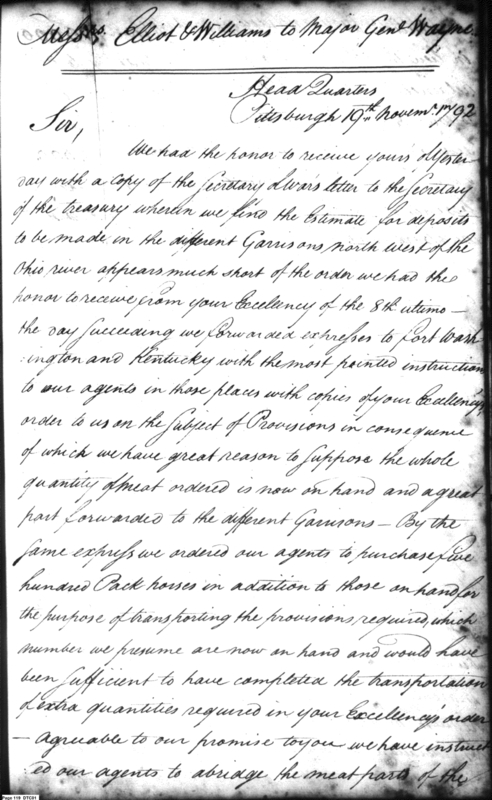 Messrs. Elliot & Williams to Major Genl. Wayne.
Head Quarters
Pittsburgh 19th. Novemr. 1792
Sir,
We had the honor to receive yours of Yester
day with a copy of the Secretary of Wars letter to the Secretary
of the treasury wherein we find the Estimate for deposits
to be made in the different Garrisons north west of the
Ohio river appears much short of the order we had the
honor to receive from your Excellency of the 8th ultimo —
the day succeeding we forwarded expresses to fort Wash
:ington and Kentucky with the most pointed instruction
to our agents in those places with copies of your Excellency's
order to us on the subject of Provisions in consequence
of which we have great reason to suppose the whole
quantity of meat ordered is now on hand and a great
part forwarded to the different Garrisons — By the
same express we ordered our agents to purchase five
hundred Pack horses in addition to those on hand for
the purpose of transporting the provisions required, which
number we presume are now on hand and would have
been sufficient to have completed the transportation
of extra quantities required in your Excellency's order
— agreeable to our promise to you we have instruct
:ed our agents to abridge the meat parts of the
Page 119 DTC01